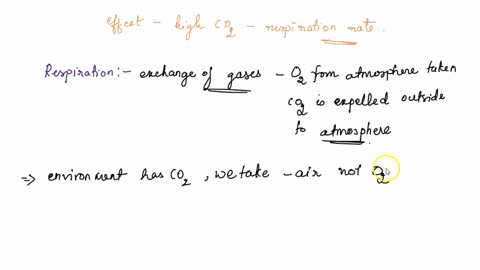 effect - high CO2 - respiration rate.
Respiration:- exchange of gases - O2 from atmosphere taken
CO2 is expelled outside
to atmosphere
=> environment has CO2, we take - air not O2